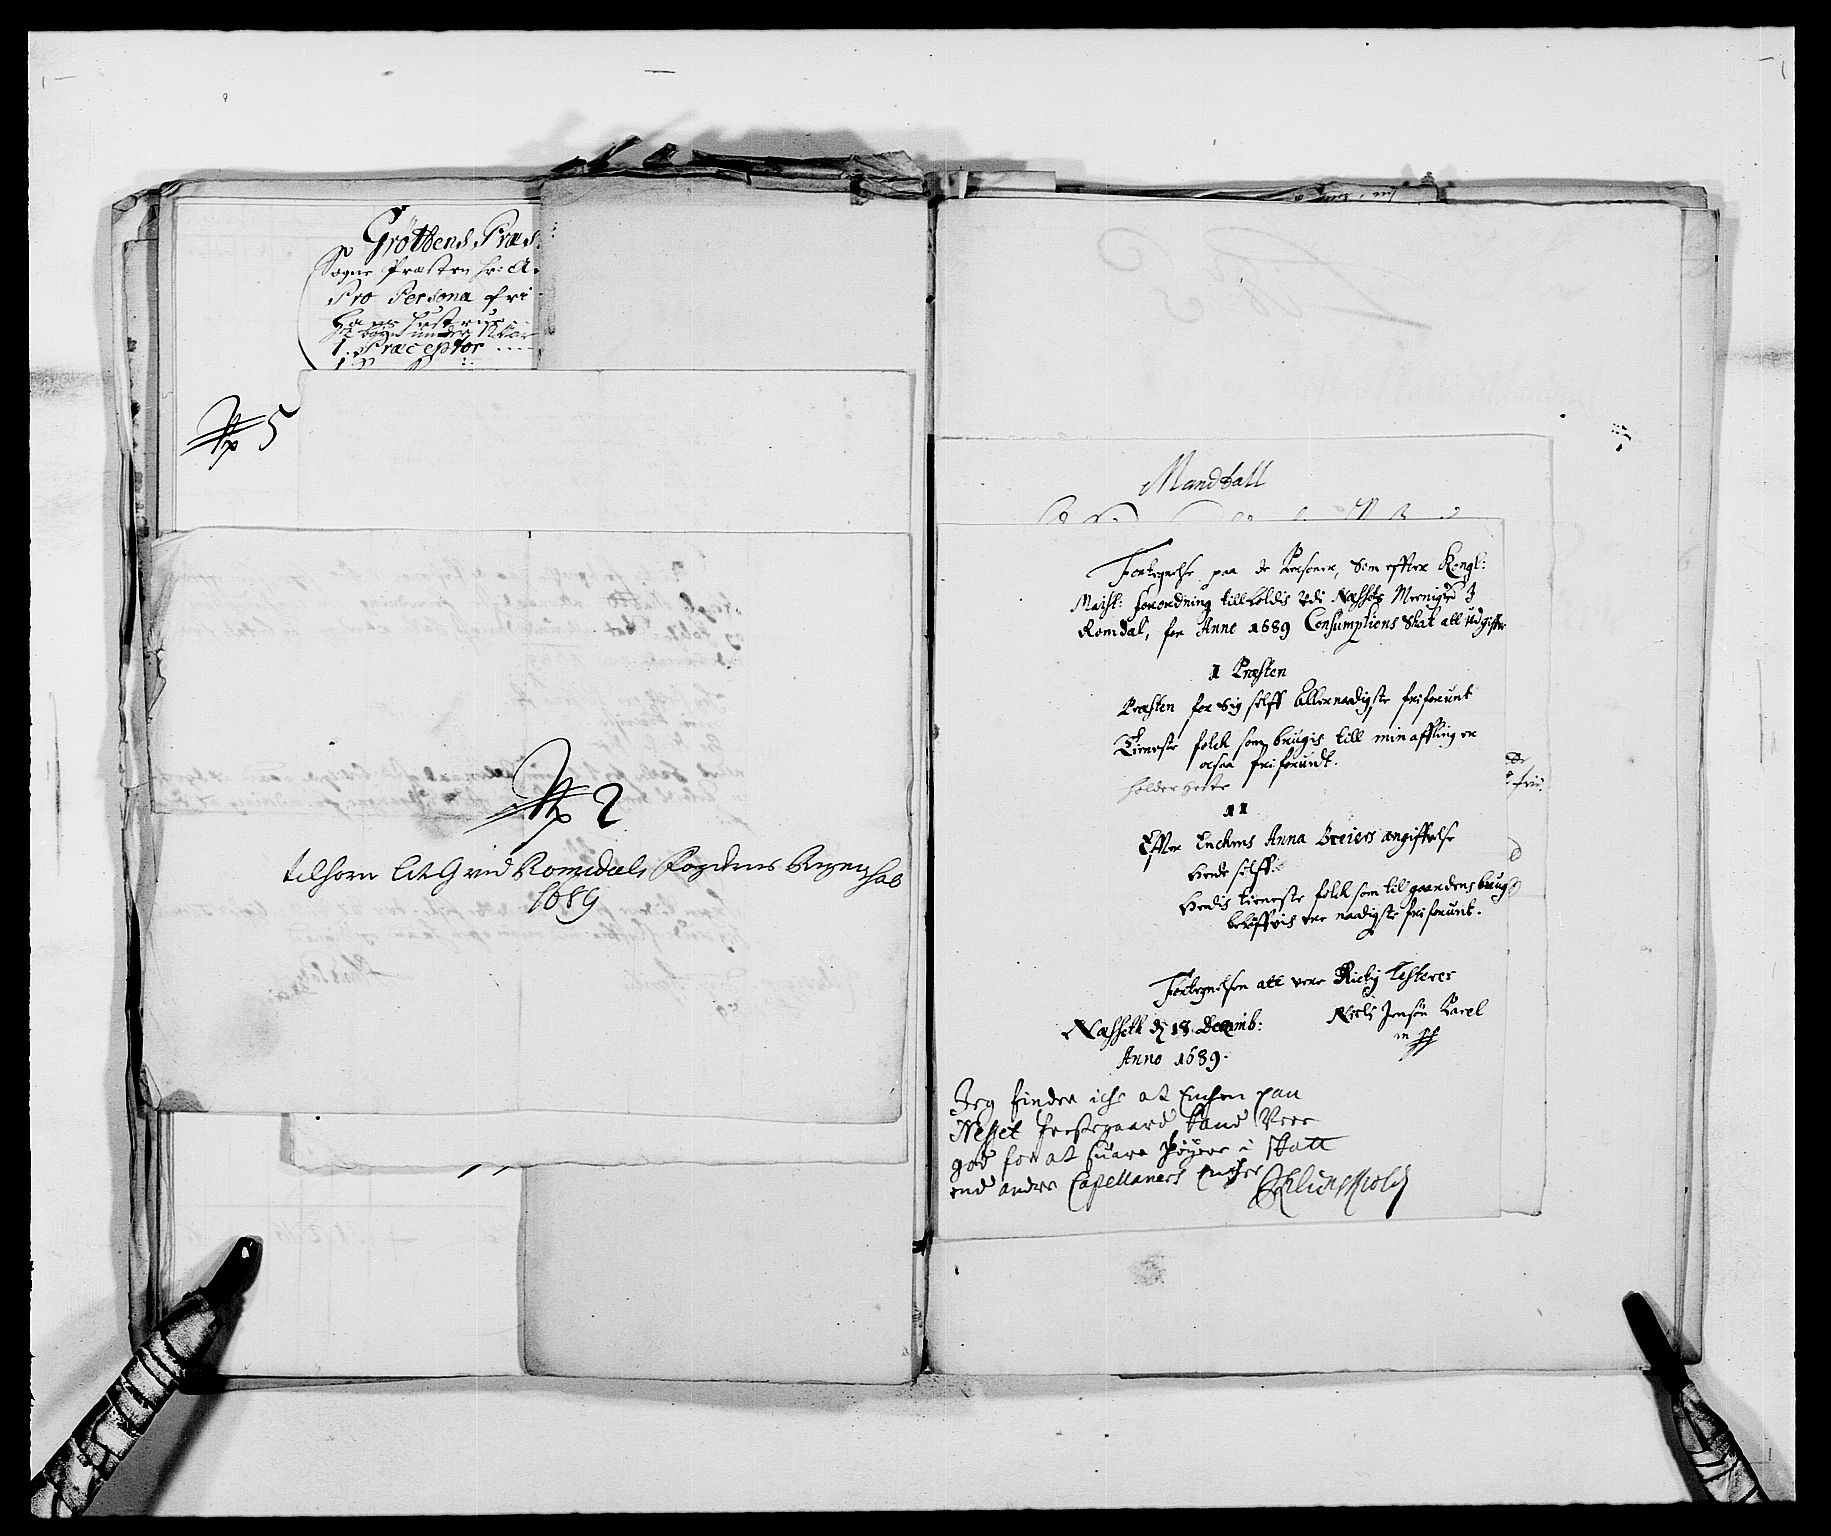 Gröttens Præs
Sogne Præsten hr: A
Pro Persona fri
Hans hustrue
2 børn under 12 Aar
1. Præceptor ....
No 5
No 2
tilhørn Lit G ved Romsdals Fogderis Regenskab
1689
Mandtall
Fortegnelse paa de Personer, Som effter Kongl:
Maist: forordning tillholdis Udi Næssets Mernigted I
Romdal, for Anno 1689 Consumptions Skat att udgiffve
I Præsten
Præsten for Sig sielff Allernaadigste friforunt
Tieneste folck som brugis till min affling er
ocsaa friforundt.
holder heste
II
Effter Enckens Anna Breiers angiffvelse
Hende sielff.
Hendis tieneste folck som til gaardens brug
behøffvis ere naadigste friforunt.
Fortegnelsen att vere Rictig Testerer
Næssett dj 18 Decemb:
Anno 1689.
Niels Jensön Parel
m pp
Jeg finder iche at Enchen paa
Nesset Prestegaard kand Vere
god for at suare høyere i skatt
end andre Capellaners Encher